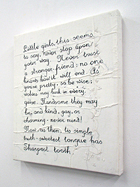 Little girls, this seems
to say, Never stop upon
your way. Never trust
a stranger-friend; no one
knows how it will end. As
you're pretty, so be wise;
wolves may lurk in every
guise. Handsome they may
be, and kind, gay, or
charming - never mind!
Now, as then, 'tis simply
truth - sweetest tongue has
sharpest tooth.